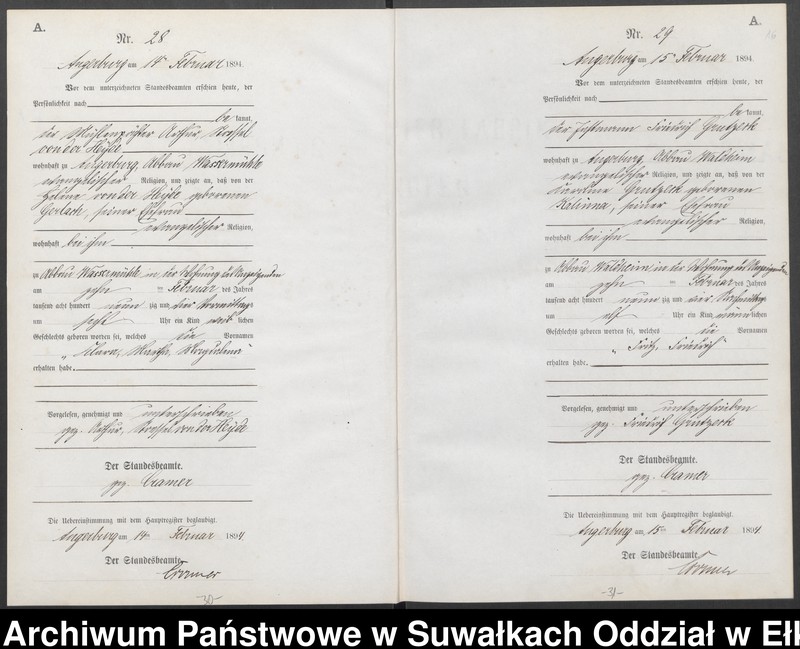 A.
Nr. 28
Angerburg am 14ten Februar 1894.
Vor dem unterzeichneten Standesbeamten erschien heute, der
Persönlichkeit nach
be kannt,
der Mühlenpächter Arthur,
von der Heyde
wohnhaft zu Angerburg, Abbau Wassermühle
evangelischer Religion, und zeigte an, daß von der
Helene von der Heyde geborenen
Gerlach, seiner Ehefrau
evangelischer Religion,
wohnhaft bei ihm
zu Abbau Wassermühle in der Wohnung des Anzeigenden
am zehn ten Februar des Jahres
tausend acht hundert neun zig und vier Vormittags
um sechs Uhr ein Kind weib lichen
Geschlechts geboren worden sei, welches die Vornamen
„Clara, Martha,
erhalten habe.
Vorgelesen, genehmigt und unterschrieben
gez. Arthur, von der Heyde
Der Standesbeamte.
gez. Cramer
Die Uebereinstimmung mit dem Hauptregister beglaubigt.
Angerburg am 14ten Februar 1894
Der Standesbeamte.
Cramer
-30-
A.
Nr. 29
Angerburg am 15ten Februar 1894
Vor dem unterzeichneten Standesbeamten erschien heute, der
Persönlichkeit nach
be kannt,
der Instmann Friedrich Grutzeck
wohnhaft zu Angerburg, Abbau Waldheim
evangelischer Religion, und zeigte an, daß von der
Karoline Grutzeck geborenen
Kalinna, seiner Ehefrau
evangelischer Religion,
wohnhaft bei ihm
zu Abbau Waldheim in der Wohnung des Anzeigenden
am zehn ten Februar des Jahres
tausend acht hundert neun zig und vier
um elf Uhr ein Kind männ lichen
Geschlechts geboren worden sei, welches die Vornamen
„Fritz, Friedrich“
erhalten habe.
Vorgelesen, genehmigt und unterschrieben
gez. Friedrich Grutzeck
Der Standesbeamte.
gez. Cramer
Die Uebereinstimmung mit dem Hauptregister beglaubigt.
Angerburg am 15ten Februar 1894
Der Standesbeamte.
Cramer
-31-
Archiwum Państwowe w Suwałkach Oddział w Ełk